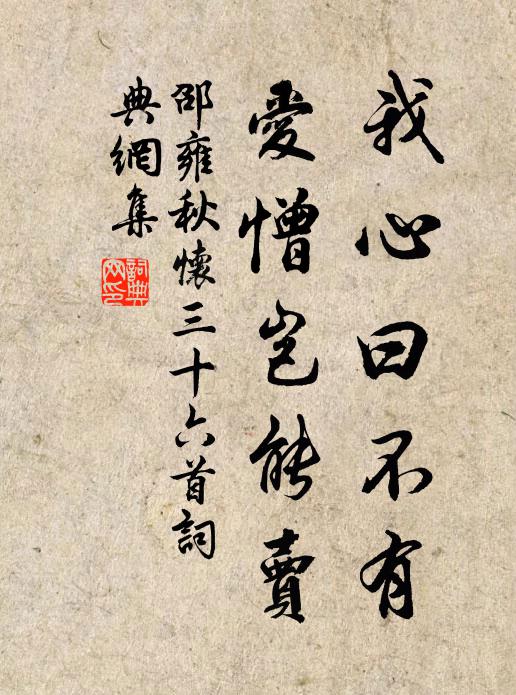 我心曰不有
愛憎豈能賣
邵雍秋懷三十六首詞
典網集
詞典網印